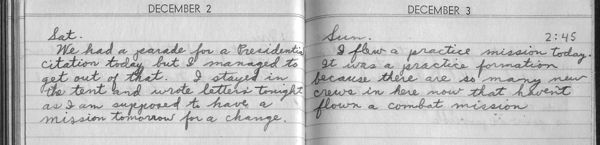 DECEMBER 2
Sat.
We had a parade for a Presidential
citation today but I managed to
get out of that. I stayed in
the tent and wrote letters tonight
as I am supposed to have a
mission tomorrow for a change.
DECEMBER 3
Sun. 2:45
I flew a practice mission today.
It was a practice formation
because there are so many new
crews in here now that haven't
flown a combat mission